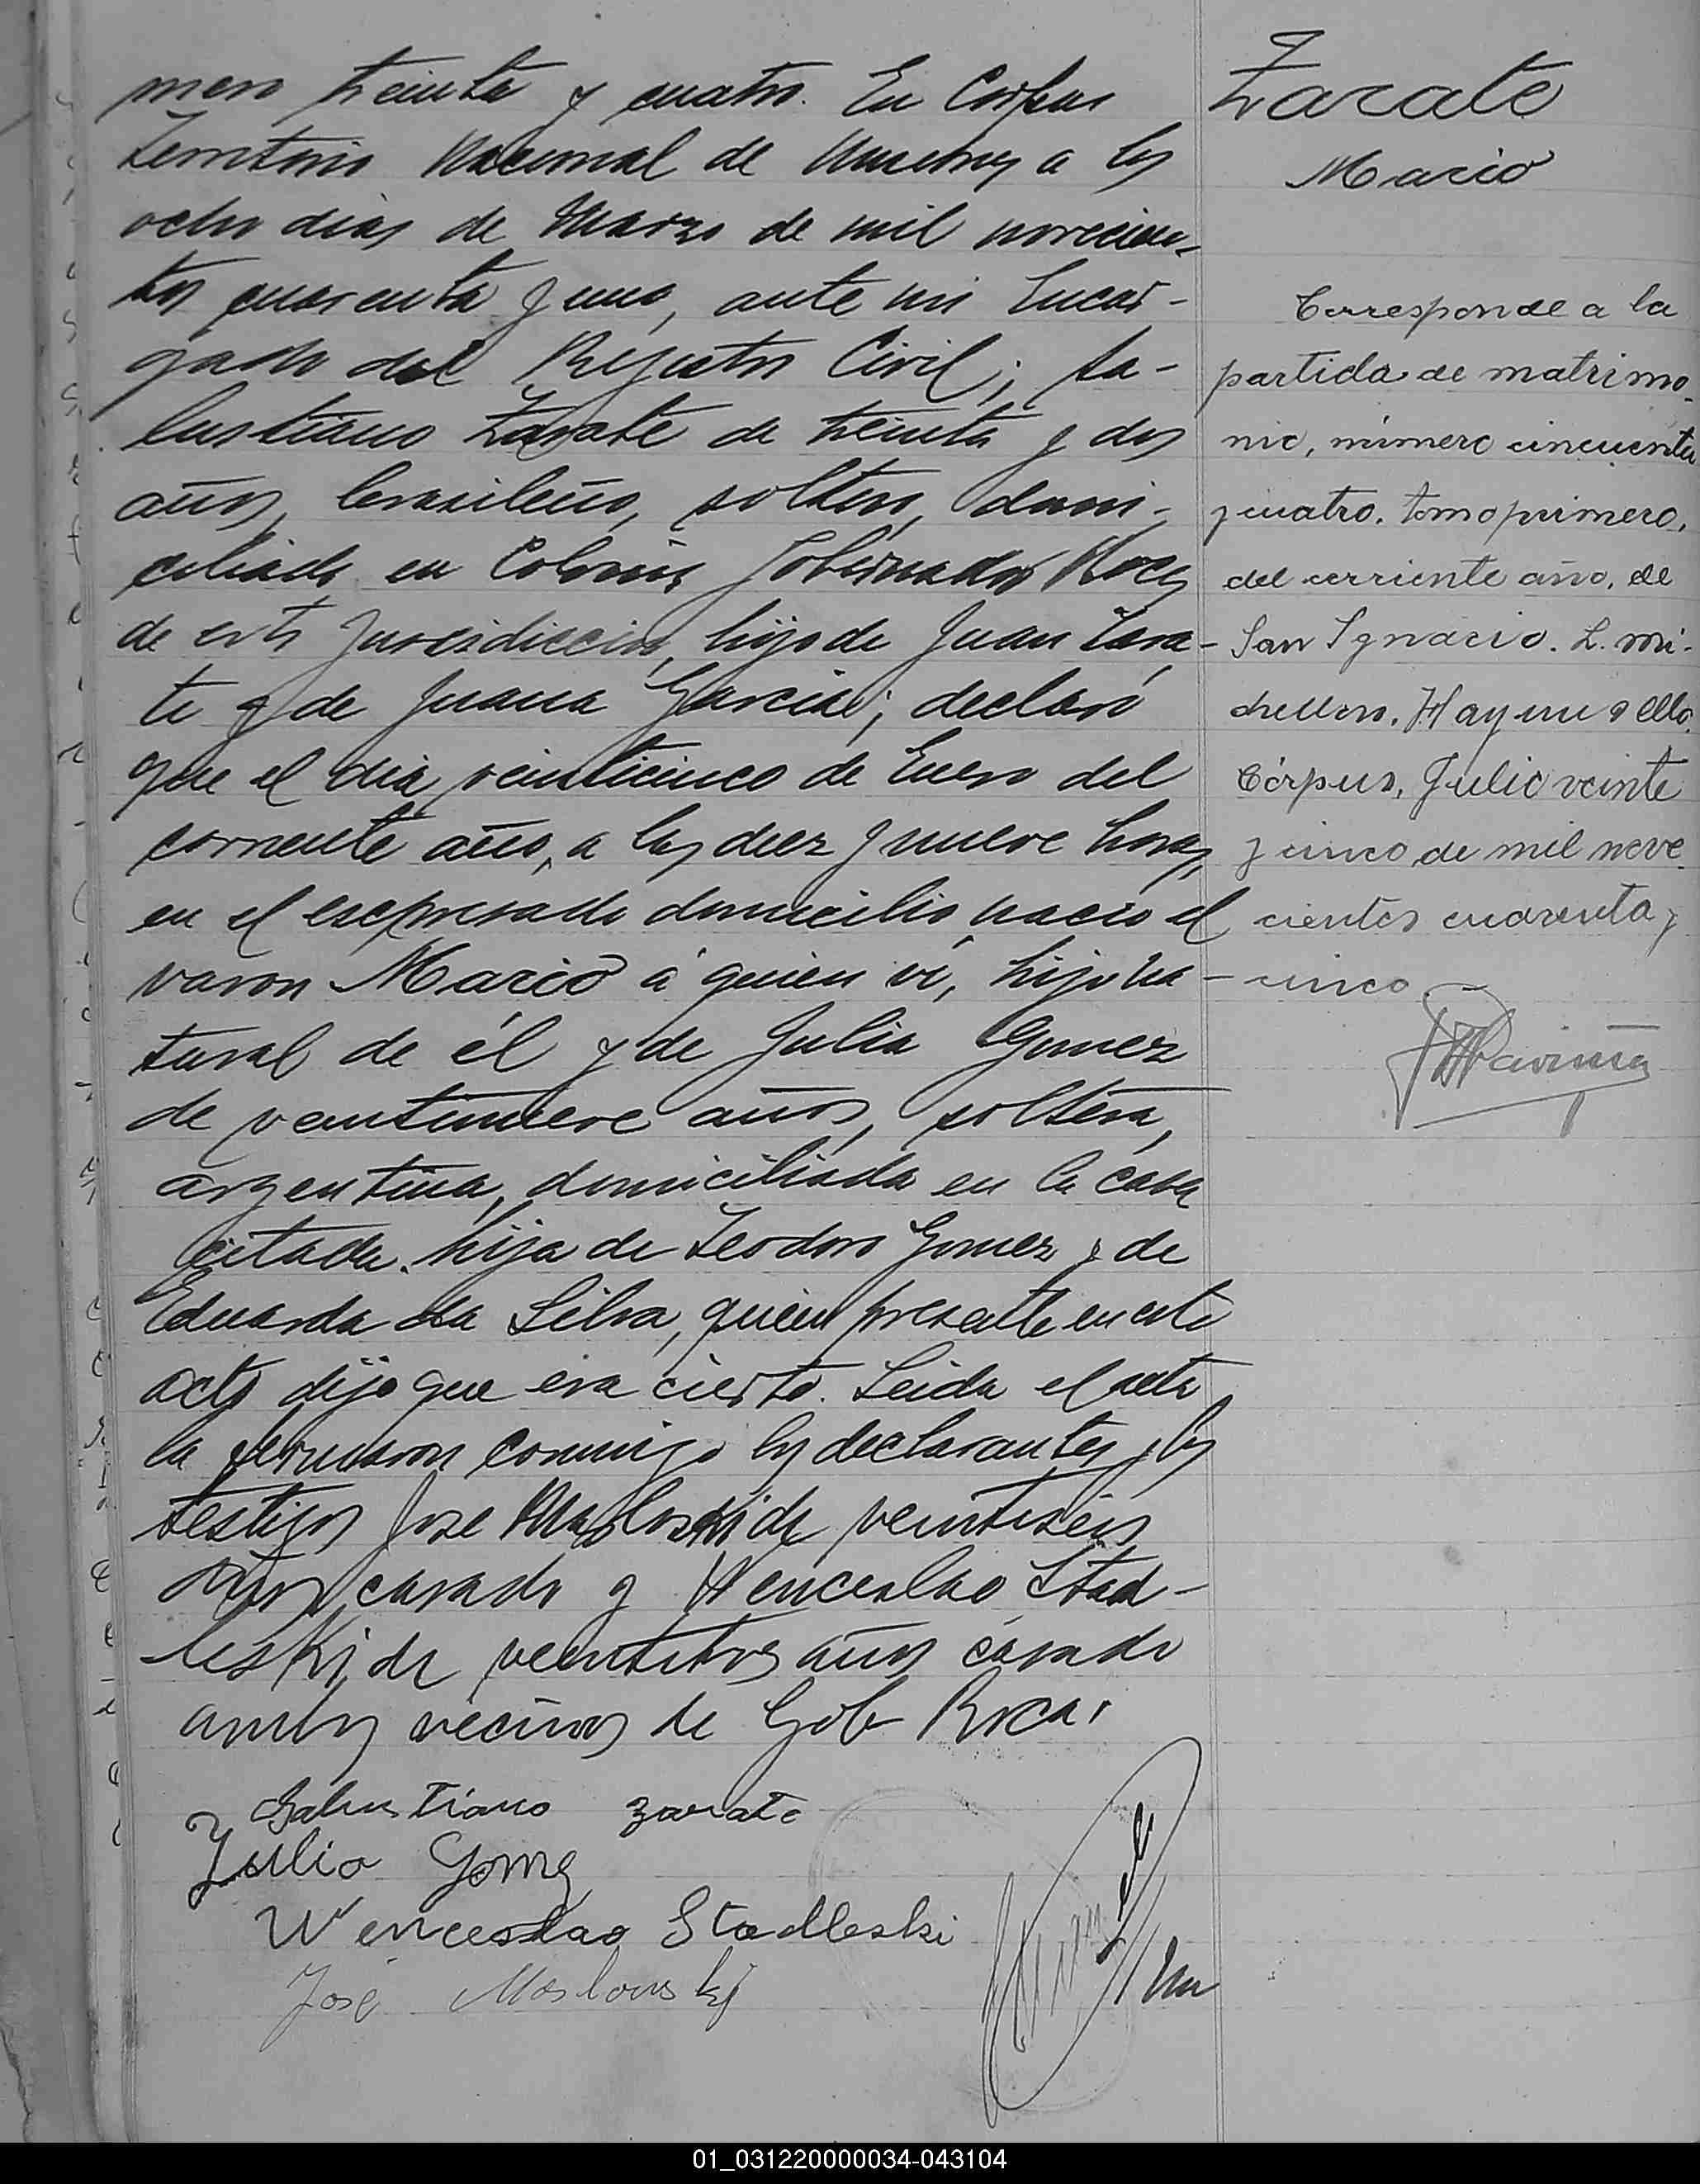 mero treinta y cuatro. En Corpus
Territorio Nacional de Misiones a los
ocho dias de Marzo de mil novecien-
tos cuarenta y uno, ante mi Encar-
gado del Registro Civil; Sa-
lustiano Zarate de treinta y dos
años, brasileño, soltero, domi-
ciliado en Colonia Gobernador Roca
de esta Jurisdiccion, hijo de Juan Zara-
te y de Juana Garcia; declaró
que el dia veinticinco de Enero del
corriente año, a las diez y nueve horas,
en el expresado domicilio nació el
varon Mario á quien ví, hijo na-
tural de él y de Julia Gomez
de veintinueve años, soltera,
argentina, domiciliada en la casa
citada. hija de Teodoro Gomez y de
Eduarda da Silva, quien presente en este
acto dijo que era cierto. Leida el acta
la firmaron conmigo los declarantes y los
testigos Jose Masloski de veintiseis
años casado y Wenceslao Stad-
leski de veintitres años casado
ambos vecinos de Gob Roca.
Salustiano zarate
Julia Gomez
Wenceslao Stadleski
José Maslowskij
Zarate
Mario
Corresponde a la
partida de matrimo-
nio, número cincuenta
y cuatro, tomo primero,
del corriente año, de
San Ignacio. L. Mi-
chellon. Hay un sello.
Córpus, Julio veinte
y cinco de mil nove-
cientos cuarenta y
cinco
01_031220000034-043104